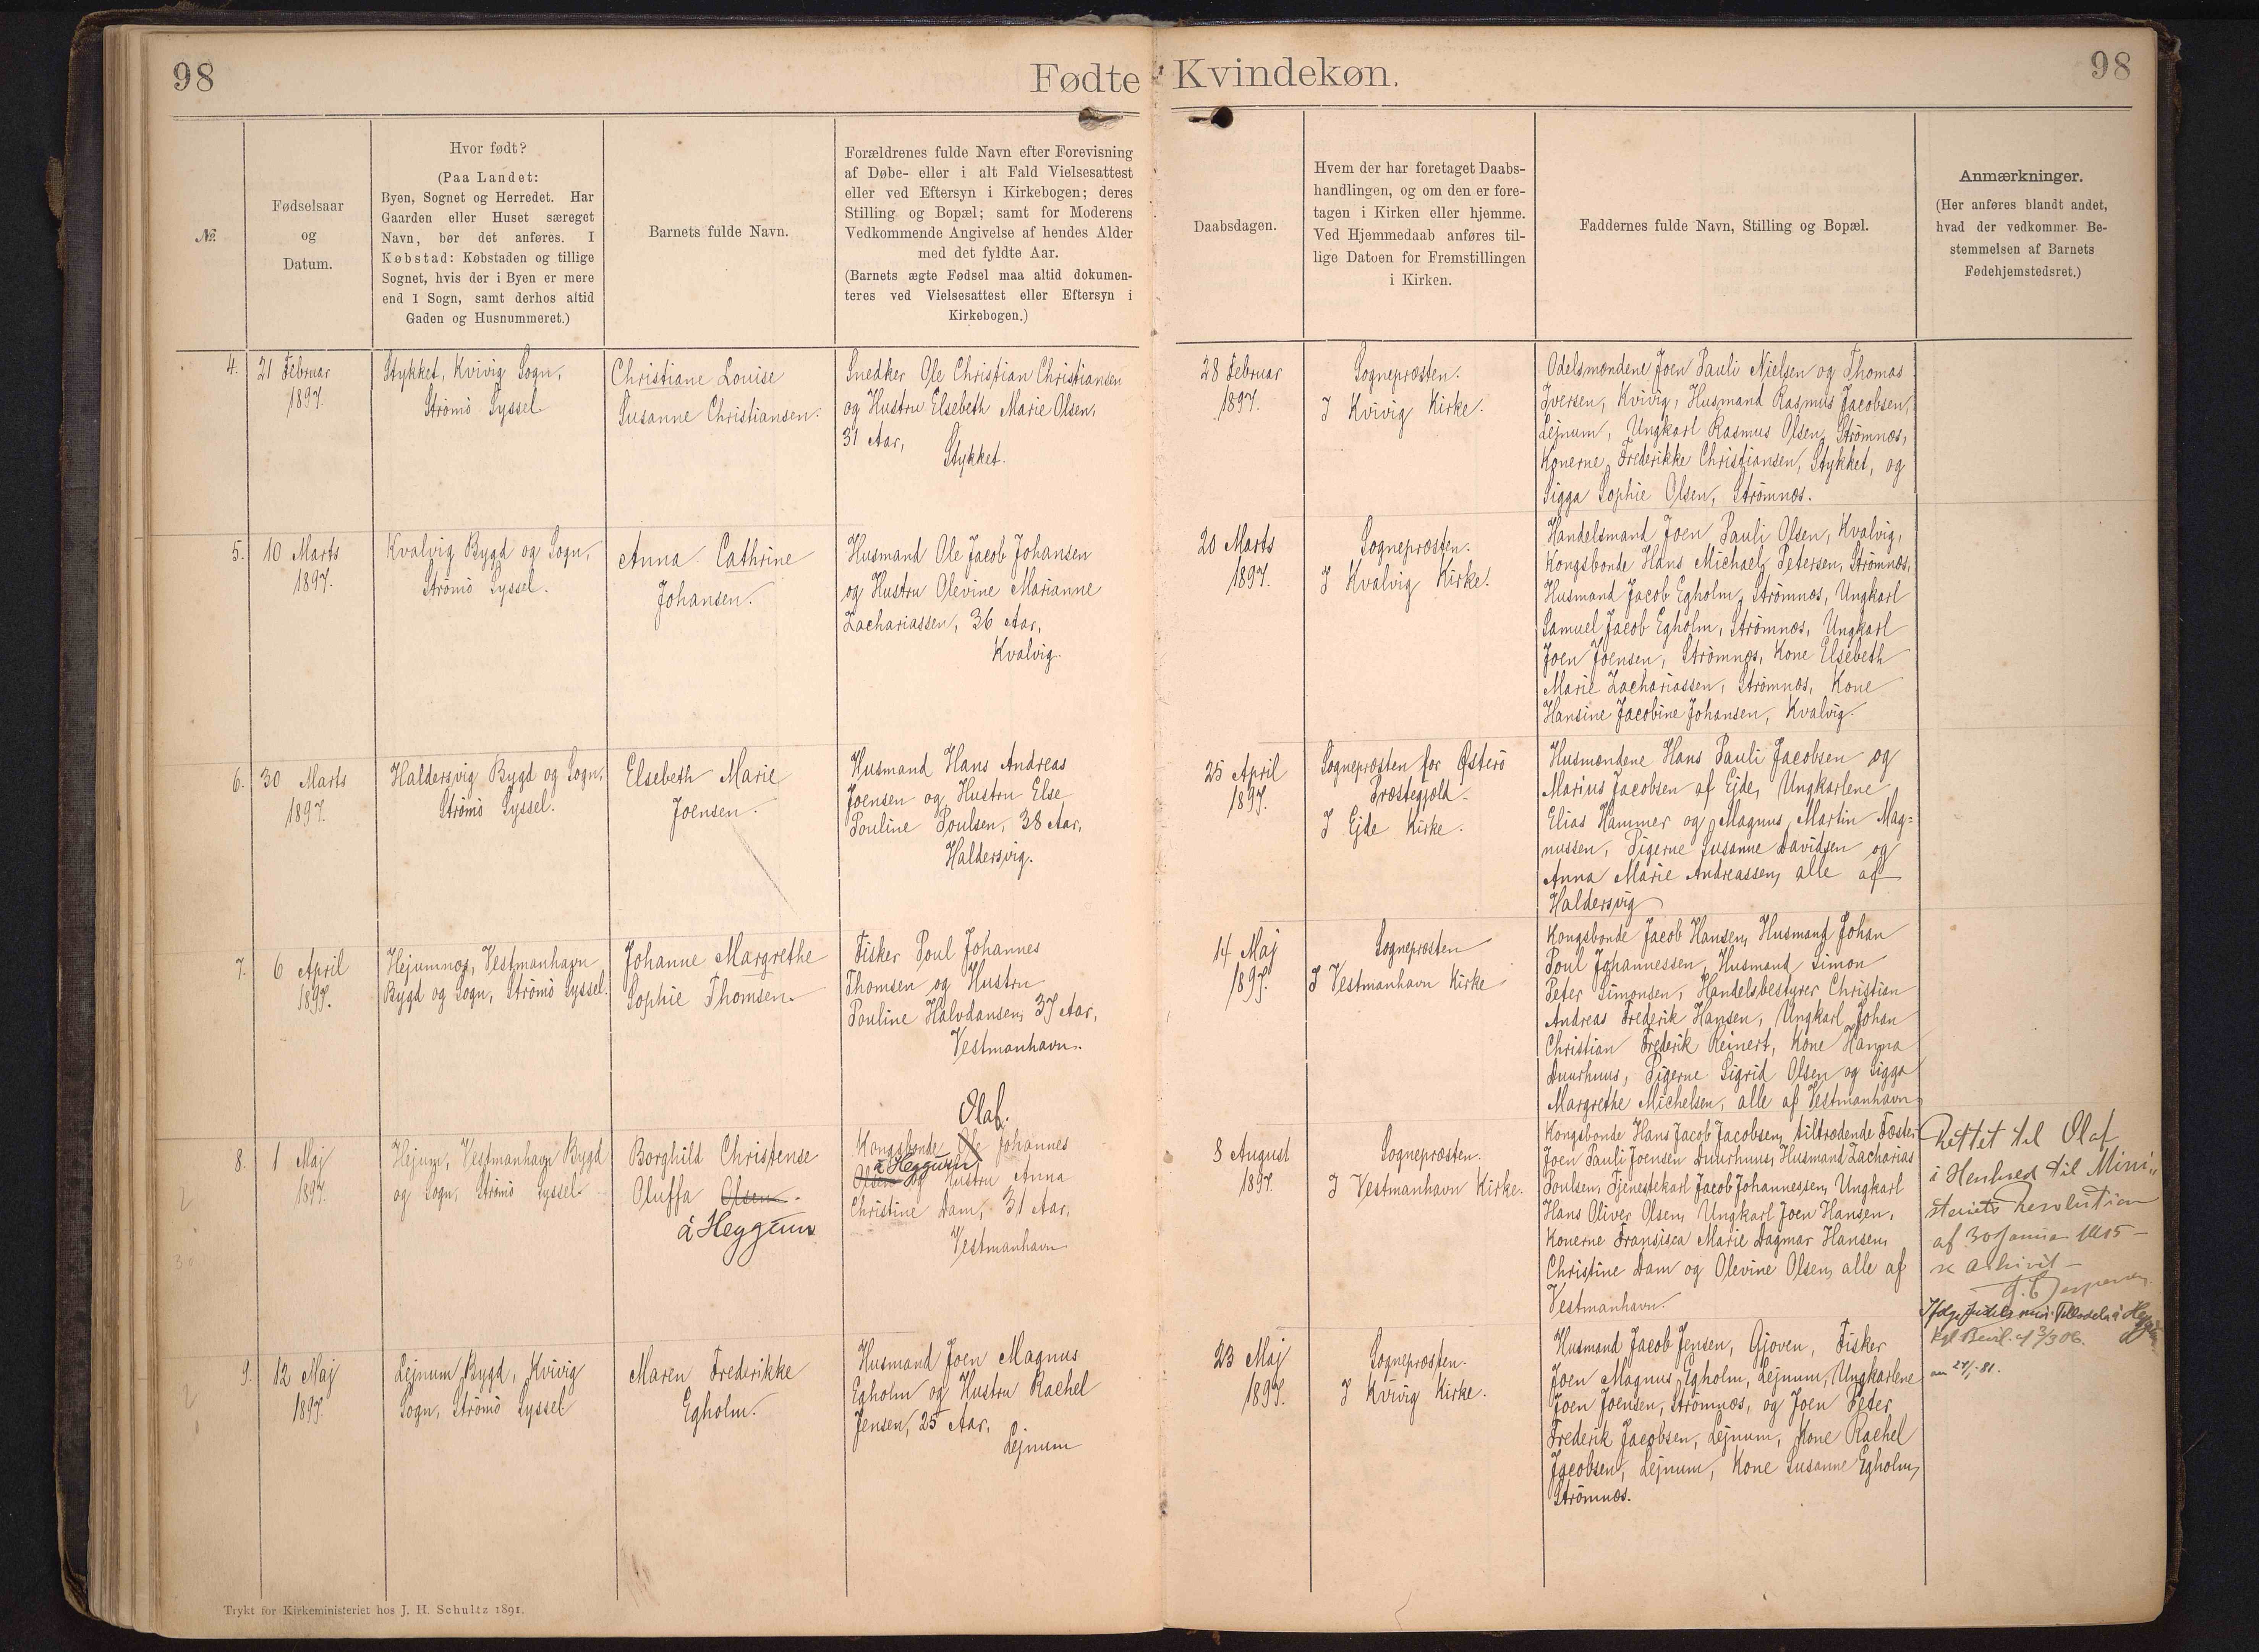 98
Fødte Kvindekøn.
98
№.
Fødselsaar
og
Datum.
Hvor født?
(Paa Landet:
Byen, Sognet og Herredet. Har
Gaarden eller Huset særeget
Navn, bør det anføres. I
Købstad: Købstaden og tillige
Sognet, hvis der i Byen er mere
end 1 Sogn, samt derhos altid
Gaden og Husnummeret.)
Barnets fulde Navn.
Forældrenes fulde Navn efter Forevisning
af Døbe- eller i alt Fald Vielsesattest
eller ved Eftersyn i Kirkebogen; deres
Stilling og Bopæl; samt for Moderens
Vedkommende Angivelse af hendes Alder
med det fyldte Aar.
(Barnets ægte Fødsel maa altid dokumen-
teres ved Vielsesattest eller Eftersyn i
Kirkebogen.)
Daabsdagen.
Hvem der har foretaget Daabs-
handlingen, og om den er fore-
tagen i Kirken eller hjemme.
Ved Hjemmedaab anføres til-
lige Datoen for Fremstillingen
i Kirken.
Faddernes fulde Navn, Stilling og Bopæl.
Anmærkninger.
(Her anføres blandt andet,
hvad der vedkommer Be-
stemmelsen af Barnets
Fødehjemstedsret.)
4.
21 Februar
1897.
Stykket, Kvivig Sogn,
Strømø Syssel
Christiane Louise
Susanne Christiansen.
Snedker Ole Christian Christiansen
og Hustru Elsebeth Marie Olsen,
31 Aar,
Stykket.
28 Februar
1897.
Sognepræsten.
I Kvivig Kirke.
Odelsmændene Joen Pauli Nielsen og Thomas
Iversen, Kvivig, Husmand Rasmus Jacobsen,
Lejnum, Ungkarl Rasmus Olsen, Strømnæs,
Konerne Frederikke Christiansen, Stykket, og
Sigga Sophie Olsen, Strømnæs.
5.
10 Marts
1897.
Kvalvig Bygd og Sogn,
Strømø Syssel.
Anna Cathrine
Johansen.
Husmand Ole Jacob Johansen
og Hustru Olevine Marianne
Zachariassen, 36 Aar,
Kvalvig.
20 Marts
1897.
Sognepræsten.
I Kvalvig Kirke.
Handelsmand Joen Pauli Olsen, Kvalvig,
Kongsbonde Hans Michael Petersen, Strømnæs,
Husmand Jacob Egholm, Strømnæs, Ungkarl
Samuel Jacob Egholm, Strømnæs, Ungkarl
Joen Joensen, Strømnæs, Kone Elsebeth
Marie Zachariassen, Strømnæs, Kone
Hansine Jacobine Johansen, Kvalvig.
6.
30 Marts
1897.
Haldersvig Bygd og Sogn,
Strømø Syssel.
Elsebeth Marie
Joensen.
Husmand Hans Andreas
Joensen og Hustru Else
Pouline Poulsen, 38 Aar,
Haldersvig.
25 April
1897.
Sognepræsten for Østerø
Præstegjæld.
I Ejde Kirke.
Husmændene Hans Pauli Jacobsen og
Marius Jacobsen af Ejde, Ungkarlene
Elias Hammer og Magnus Martin Mag=
nussen, Pigerne Susanne Davidsen og
Anna Marie Andreassen, alle af
Haldersvig
7.
6 April
1897.
Hejumnæs, Vestmanhavn
Bygd og Sogn, Strømø Syssel.
Johanne Margrethe
Sophie Thomsen.
Fisker Poul Johannes
Thomsen og Hustru
Pouline Halvdansen, 37 Aar,
Vestmanhavn.
14 Maj
1897.
Sognepræsten
I Vestmanhavn Kirke
Kongsbonde Jacob Hansen, Husmand Johan
Poul Johannessen, Husmand Simon
Peter Simonsen, Handelsbestyrer Christian
Andreas Frederik Hansen, Ungkarl Johan
Christian Frederik Reinert, Kone Hanna
Duurhuus, Pigerne Sigrid Olsen og Sigga
Margrethe Michelsen, alle af Vestmanhavn
8.
1 Maj
1897.
Hejum, Vestmanhavn Bygd
og Sogn, Strømø Syssel.
Borghild Christense
Oluffa Olsen.
á Heygum
Olaf.
Kongsbonde Ole Johannes
á Heygum
Olsen og Hustru Anna
Christine Dam, 31 Aar,
Vestmanhavn
8 August
1897.
Sognepræsten.
I Vestmanhavn Kirke.
Kongsbonde Hans Jacob Jacobsen, tiltrædende Fæster
Joen Pauli Joensen Duurhuus, Husmand Zacharias
Poulsen, Tjenestekarl Jacob Johannessen, Ungkarl
Hans Oliver Olsen, Ungkarl Joen Hansen,
Konerne Fransisca Marie Dagmar Hansen,
Christine Dam og Olevine Olsen, alle af
Vestmanhavn.
Rettet til Olaf
i Henhold til Mini-
steriets Resolution
af 30 Januar 1905 –
se Arkivet –
á Heygum
Kgl Bevil. af 3/3 06.
9.
12 Maj
1897.
Lejnum Bygd, Kvivig
Sogn, Strømø Syssel
Maren Frederikke
Egholm.
Husmand Joen Magnus
Egholm og Hustru Rachel
Jensen, 25 Aar,
Lejnum
23 Maj
1897.
Sognepræsten.
I Kvivig Kirke.
Husmand Jacob Jensen, Gjøven, Fisker
Joen Magnus Egholm, Lejnum, Ungkarlene
Joen Joensen, Strømnæs, og Joen Peter
Frederik Jacobsen, Lejnum, Kone Rachel
Jacobsen, Lejnum, Kone Susanne Egholm,
Strømnæs.
Trykt for Kirkeministeriet hos J. H. Schultz 1891.